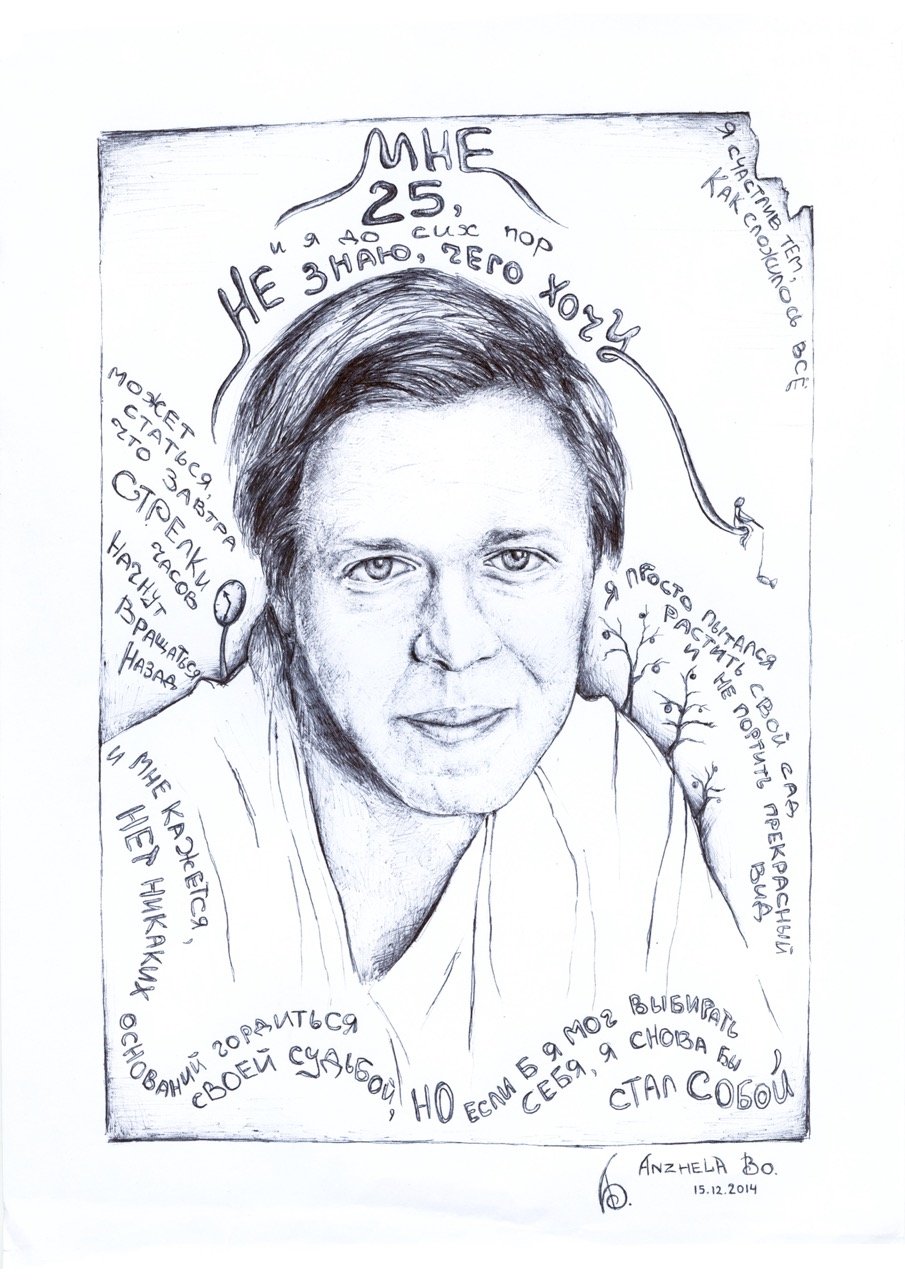 МНЕ
25,
и я до сих пор
НЕ ЗНАЮ, ЧЕГО ХОЧУ
Я СЧАСТЛИВ ТЕМ,
КАК СЛОЖИЛОСЬ ВСЁ
МОЖЕТ
СТАТЬСЯ,
ЧТО ЗАВТРА
СТРЕЛКИ
ЧАСОВ
НАЧНУТ
ВРАЩАТЬСЯ
НАЗАД
Я ПРОСТО ПЫТАЛСЯ
РАСТИТЬ СВОЙ САД
И НЕ ПОРТИТЬ ПРЕКРАСНЫЙ
ВИД
И МНЕ КАЖЕТСЯ,
НЕР НИКАКИХ
ОСНОВАНИЙ ГОРДИТЬСЯ
СВОЕЙ СУДЬБОЙ,
НО
ЕСЛИ Б Я МОГ ВЫБИРАТЬ
СЕБЯ, Я СНОВА БЫ
СТАЛ СОБОЙ,
ANZHELA BO.
15.12.2014